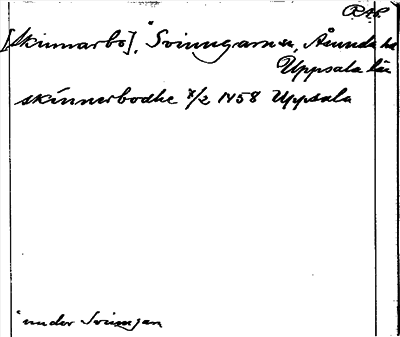 RAP.
[Skinnarbo],* Svinngarns sn, Åsunda hd
Uppsala län
skinnerbodhe 7/2 1458 Uppsala
*under Svinngarn